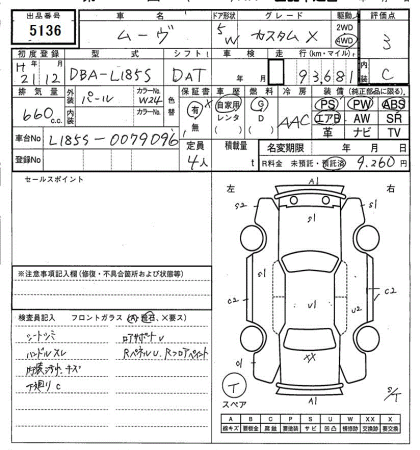 出品番号 車名 ドア形状 グレード 駆動 評価点
5136 ムーヴ 5 W カスタム X 2WD 4WD 3
初度登録 型式 シフト 車検 走行(km・マイル) 内装
H 21年12月 DBA-L185S DAT 年 月 93,681 C
排気量 外装 カラーNo. 色替 保証書 車歴 燃料 冷房 装備(純正部品に限る)
660 c.c. パール W24 有 無 自家用 レンタ G D AAC PS PW ABS
内装 カラーNo. エアB AW SR
革 ナビ TV
車台No L185S-0079096 定員 4人 積載量 t 名変期限 年 月 日
登録No R料金 未預託・預託済 9,260円
セールスポイント
左 A1 右
S2 S1 S1
S1 S1
C2 U1 U2 C2
XX
C1
A1
T
スペア
S/T
※注意事項記入欄(修復・不具合箇所および状態等)
検査員記入 フロントガラス (A、飛石、X要ス)
シートシミ ロアサポートU
ハンドルスレ RパネルU、Rフロアペイント
内装汚れ・キズ
下廻りC
A B C P S U W X XX
線キズ 要板金 腐蝕 要塗装 サビ 凹凸 補修跡 要交換 交換跡